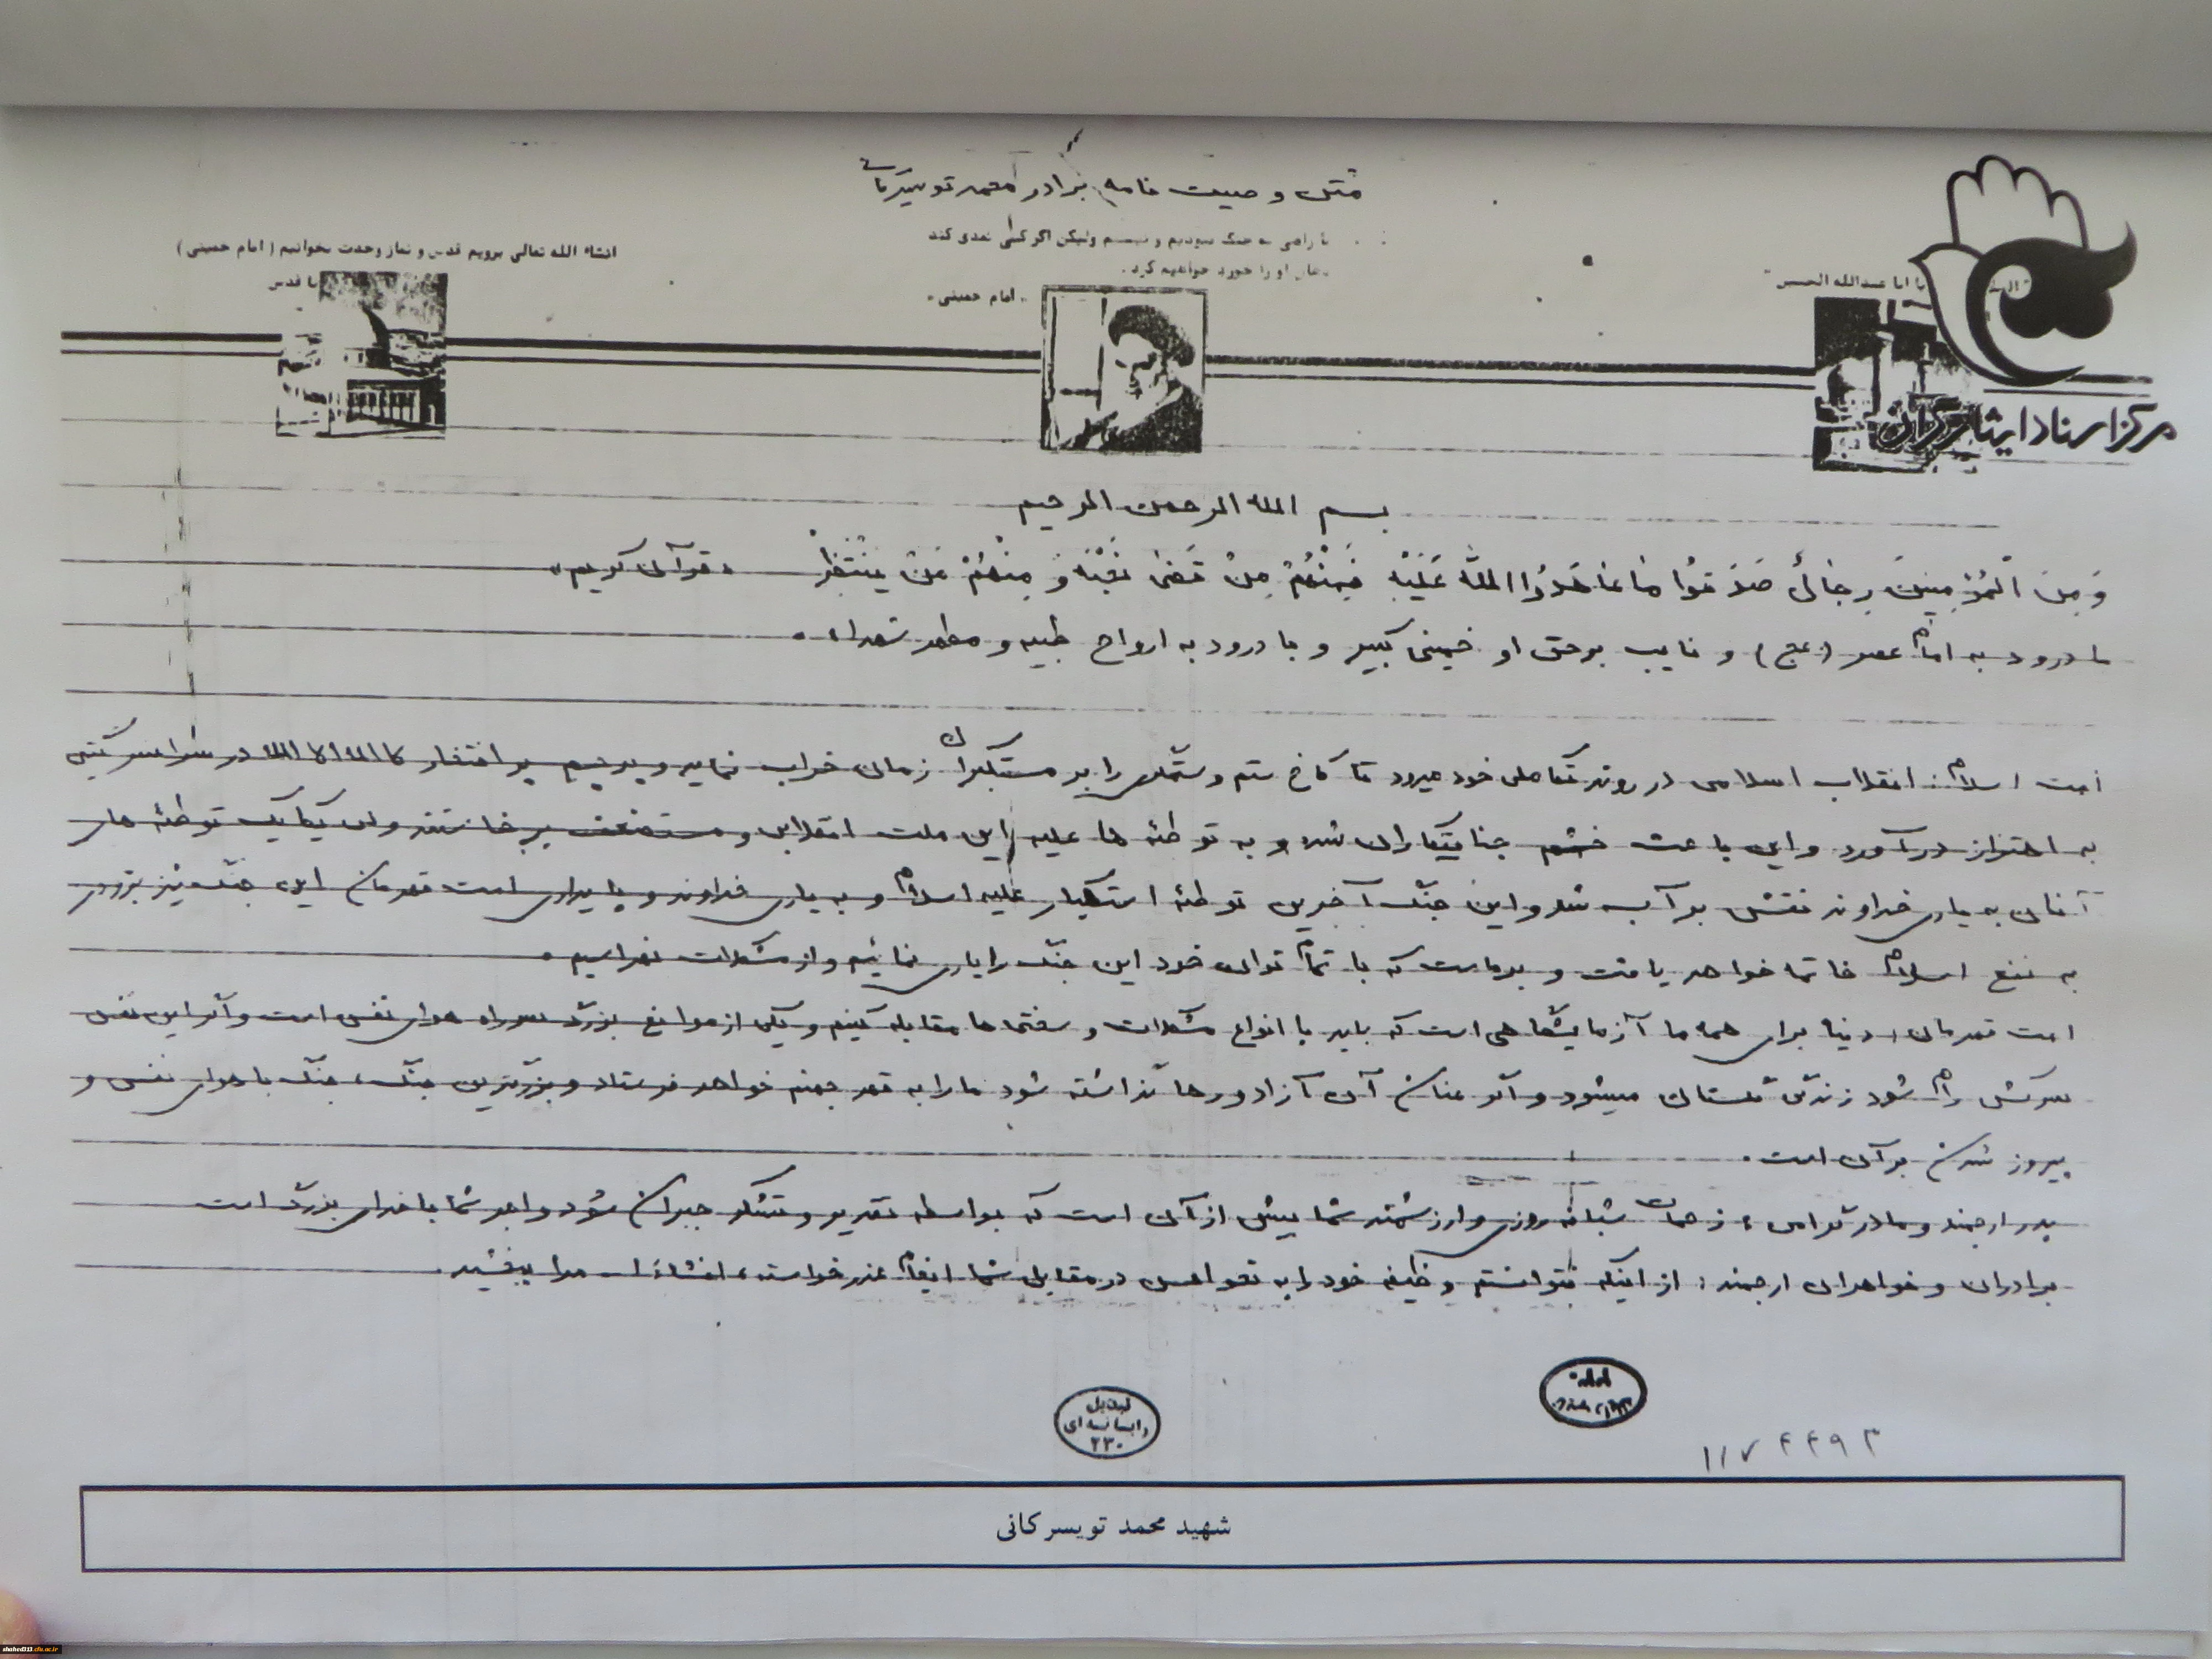 متن وصیت نامه برادر محمد تویسرکانی
ما راضی به جنگ نبودیم و نیستم ولیکن اگر کسی تعدی کند
دهان او را خورد خواهیم کرد.
"امام خمینی"
انشاء الله تعالی برویم قدس و نماز وحدت بخوانیم (امام خمینی)
یا قدس
یا ابا عبدالله الحسین
مرکز اسناد ایثارگران
بسم الله الرحمن الرحیم
وَ مِنَ الْمُؤْمِنینَ رِجالٌ صَدَقُوا ما عاهَدُوا اللهَ عَلَیْهِ فَمِنْهُمْ مَنْ قَضی نَحْبَهُ وَ مِنْهُمْ مَنْ یَنْتَظِرْ «قرآن کریم»
با درود به امام عصر (عج) و نایب برحق او خمینی کبیر و با درود به ارواح طیبه و مطهر شهداء.
امت اسلام: انقلاب اسلامی در روند تکاملی خود میرود تا کاخ ستم و ستمگری را بر مستکبران زمان خراب نماید و پرچم پر افتخار لا اله الا الله در سراسر گیتی
به اهتزاز درآورد و این باعث خشم جنایتکاران شد و به توطئه ها علیه این ملت انقلابی و مستضعف برخاستند ولی یکایک توطئه های
آنان به یاری خداوند نقش برآب شد و این جنگ آخرین توطئه استکبار علیه اسلام و به یاری خداوند و پایداری امت قهرمان این جنگ نیز بزودی
به نفع اسلام خاتمه خواهد یافت و برماست که با تمام توان خود این جنگ را یاری نمائیم و از مشکلات نهراسیم.
امت قهرمان: دنیا برای همه ما آزمایشگاهی است که باید با انواع مشکلات و سختیها مقابله کنیم و یکی از موانع بزرگ سر راه هوای نفس است و اگر این نفس
سرکش رام شود زندگی گلستان میشود و اگر عنان آن آزاد و رها گذاشته شود ما را به قعر جهنم خواهد فرستاد و بزرگترین جنگ، جنگ با هوای نفس و
پیروز شدن بر آن است.
پدر ارجمند و مادر گرامی: زحمات شبانه روزی و ارزشمند شما بیش از آن است که بواسطه تقدیر و تشکر جبران شود و اجر شما با خدای بزرگ است
برادران و خواهران ارجمند: از اینکه نتوانستم وظیفه خود را به نحو احسن در مقابل شما ایفا عذر خواسته، انشاءا... مرا ببخشید.
تبدیل
رایانه ای
۲۳۰
۱۱۷۴۴۹۳
شهید محمد تویسرکانی
shahed313.cfu.ac.ir